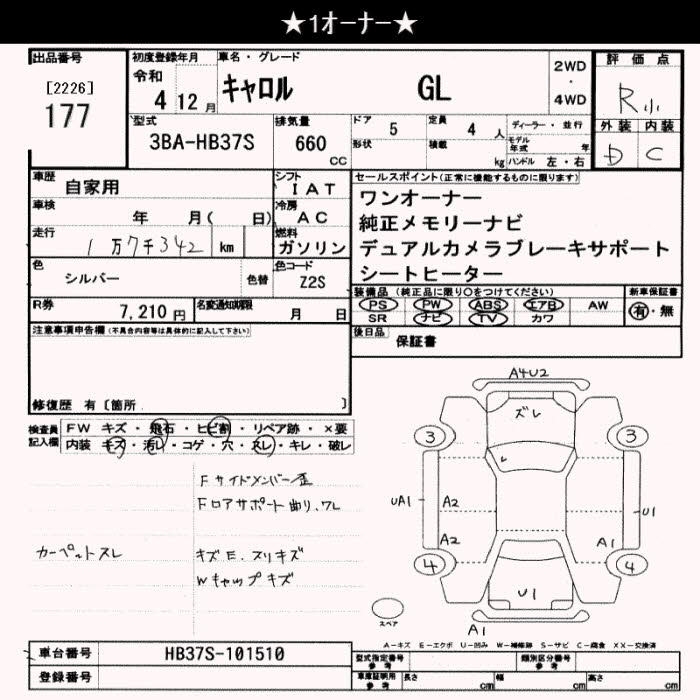 ★1オーナー★
出品番号
[2226]
177
初度登録年月
令和
4 12 月
車名・グレード
キャロル GL
2WD
・
4WD
評価点
R小
外装 内装
D C
型式
3BA-HB37S
排気量
660
CC
ドア 5
定員 4 人
ディーラー・並行
形状
積載 kg
モデル年式 年
ハンドル 左・右
車歴
自家用
シフト
IAT
車検
年 月( 日)
冷房
AC
走行
1万7千342 km
燃料
ガソリン
色
シルバー
色替
色コード
Z2S
R券
7,210 円
名変通知期限
月 日
セールスポイント(正常に機能するものに限ります)
ワンオーナー
純正メモリーナビ
デュアルカメラブレーキサポート
シートヒーター
装備品(純正品に限り○をつけてください)
新車保証書
PS PW ABS エアB AW
SR ナビ TV カワ
有・無
後日品
保証書
注意事項申告欄(不具合内容等は具体的に記入して下さい)
修復歴 有〔箇所 〕
検査員記入欄
FW キズ・飛石・ヒビ割・リペア跡・×要
内装 キズ・汚レ・コゲ・穴・スレ・キレ・破レ
Fサイドメンバー歪
Fロアサポート曲り,ワレ
カーペットスレ
キズE.スリキズ
Wキャップキズ
A4U2
ズレ
3
3
UA1
A2
U1
A2
A1
4
4
U1
スペア
A1
A-キズ E-エクボ U-凹み W-補修跡 S-サビ C-腐食 XX-交換済
車台番号
HB37S-101510
登録番号
型式指定番号
参考
類別区分番号
参考
車庫証明用
参考
長さ cm
幅 cm
高さ cm